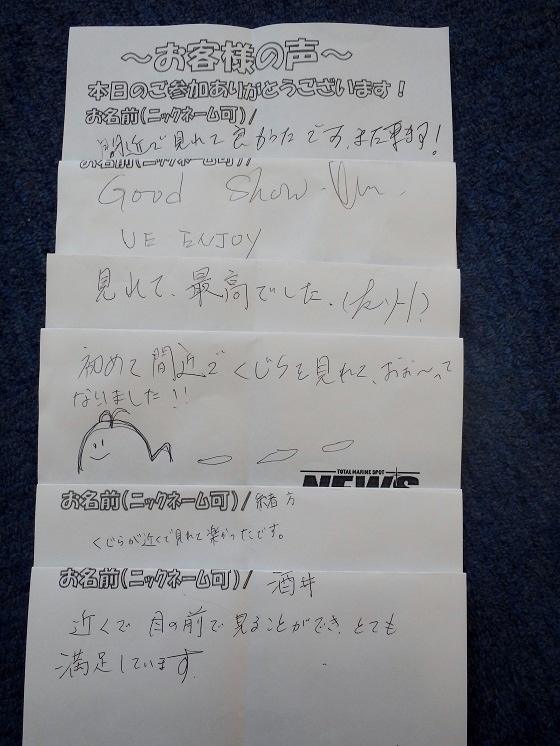 ～お客様の声～
本日のご参加ありがとうございます！
お名前(ニックネーム可)/
間近で見れて良かったです,また来ます!
お名前(ニックネーム可)/
Good Show
WE ENJOY
見れて、最高でした.
初めて間近でくじらを見れて、おぉ～って
なりました!!
TOTAL MARINE SPOT
NEWS
お名前(ニックネーム可)/緒方
くじらが近くで見れて楽かったです。
お名前(ニックネーム可)/酒井
近くで目の前で見ることができ、とても
満足しています